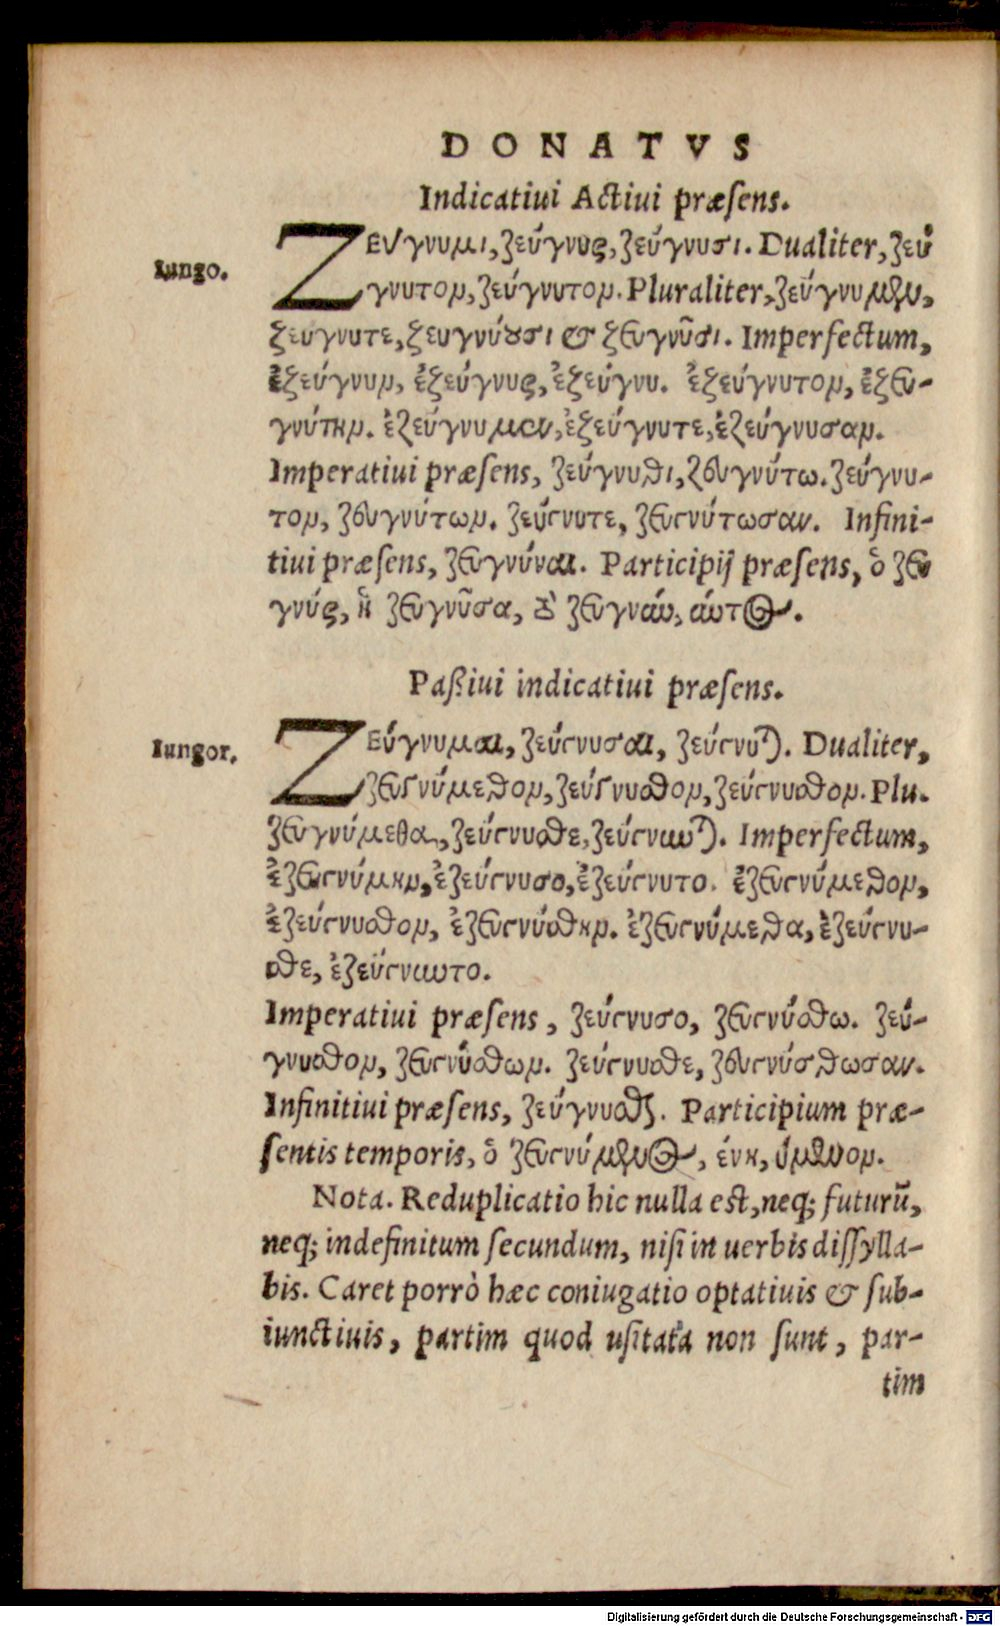 DONATVS
Indicatiui Actiui præsens.
Iungo.
ΖΕΥγνυμι, ζεύγνυς, ζεύγνυσι. Dualiter, ζεύ
γνυτον, ζεύγνυτον. Pluraliter, ζεύγνυμεν,
ζεύγνυτε, ζευγνύουσι & ζευγνῦσι. Imperfectum,
ἐζεύγνυν, ἐζεύγνυς, ἐζεύγνυ. ἐζεύγνυτον, ἐζευ-
γνύτην. ἐζεύγνυμεν, ἐζεύγνυτε, ἐζεύγνυσαν.
Imperatiui præsens, ζεύγνυθι, ζευγνύτω. ζεύγνυ-
τον, ζευγνύτων. ζεύγνυτε, ζευγνύτωσαν. Infini-
tiui præsens, ζευγνύναι. Participij præsens, ὁ ζευ
γνύς, ἡ ζευγνῦσα, τὸ ζευγνύν, ύντος.
Paßiui indicatiui præsens.
Iungor.
ΖΕύγνυμαι, ζεύγνυσαι, ζεύγνυται. Dualiter,
ζευγνύμεθον, ζεύγνυσθον, ζεύγνυσθον. Plu.
ζευγνύμεθα, ζεύγνυσθε, ζεύγνυνται. Imperfectum,
ἐζευγνύμην, ἐζεύγνυσο, ἐζεύγνυτο. ἐζευγνύμεθον,
ἐζεύγνυσθον, ἐζευγνύσθην. ἐζευγνύμεθα, ἐζεύγνυ-
σθε, ἐζεύγνυντο.
Imperatiui præsens, ζεύγνυσο, ζευγνύσθω. ζεύ-
γνυσθον, ζευγνύσθων. ζεύγνυσθε, ζευγνύσθωσαν.
Infinitiui præsens, ζεύγνυσθαι. Participium præ-
sentis temporis, ὁ ζευγνύμενος, ένη, ύμενον.
Nota. Reduplicatio hic nulla est, neq; futurũ,
neq; indefinitum secundum, nisi in uerbis dissylla-
bis. Caret porrò hæc coniugatio optatiuis & sub-
iunctiuis, partim quod usitata non sunt, par-
tim
Digitalisierung gefördert durch die Deutsche Forschungsgemeinschaft - DFG